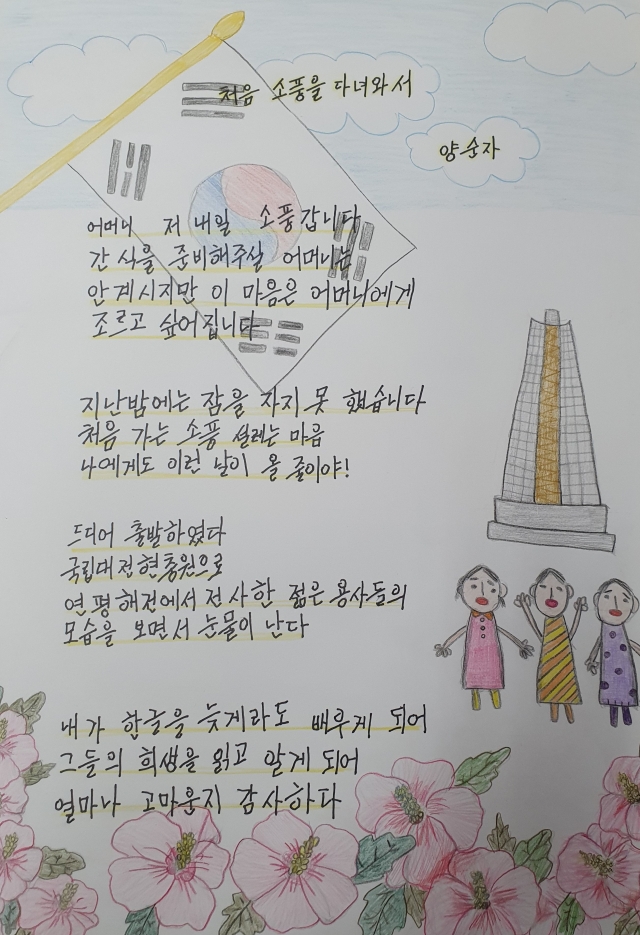 처음 소풍을 다녀와서
양순자
어머니 저 내일 소풍갑니다
간식을 준비해주실 어머니는
안계시지만 이 마음은 어머니에게
조르고 싶어집니다
지난밤에는 잠을 자지 못 했습니다
처음 가는 소풍 설레는 마음
나에게도 이런 날이 올 줄이야!
드디어 출발하였다
국립대전현충원으로
연평해전에서 전사한 젊은 용사들의
모습을 보면서 눈물이 난다
내가 한글을 늦게라도 배우게 되어
그들의 희생을 읽고 알게 되어
얼마나 고마운지 감사하다